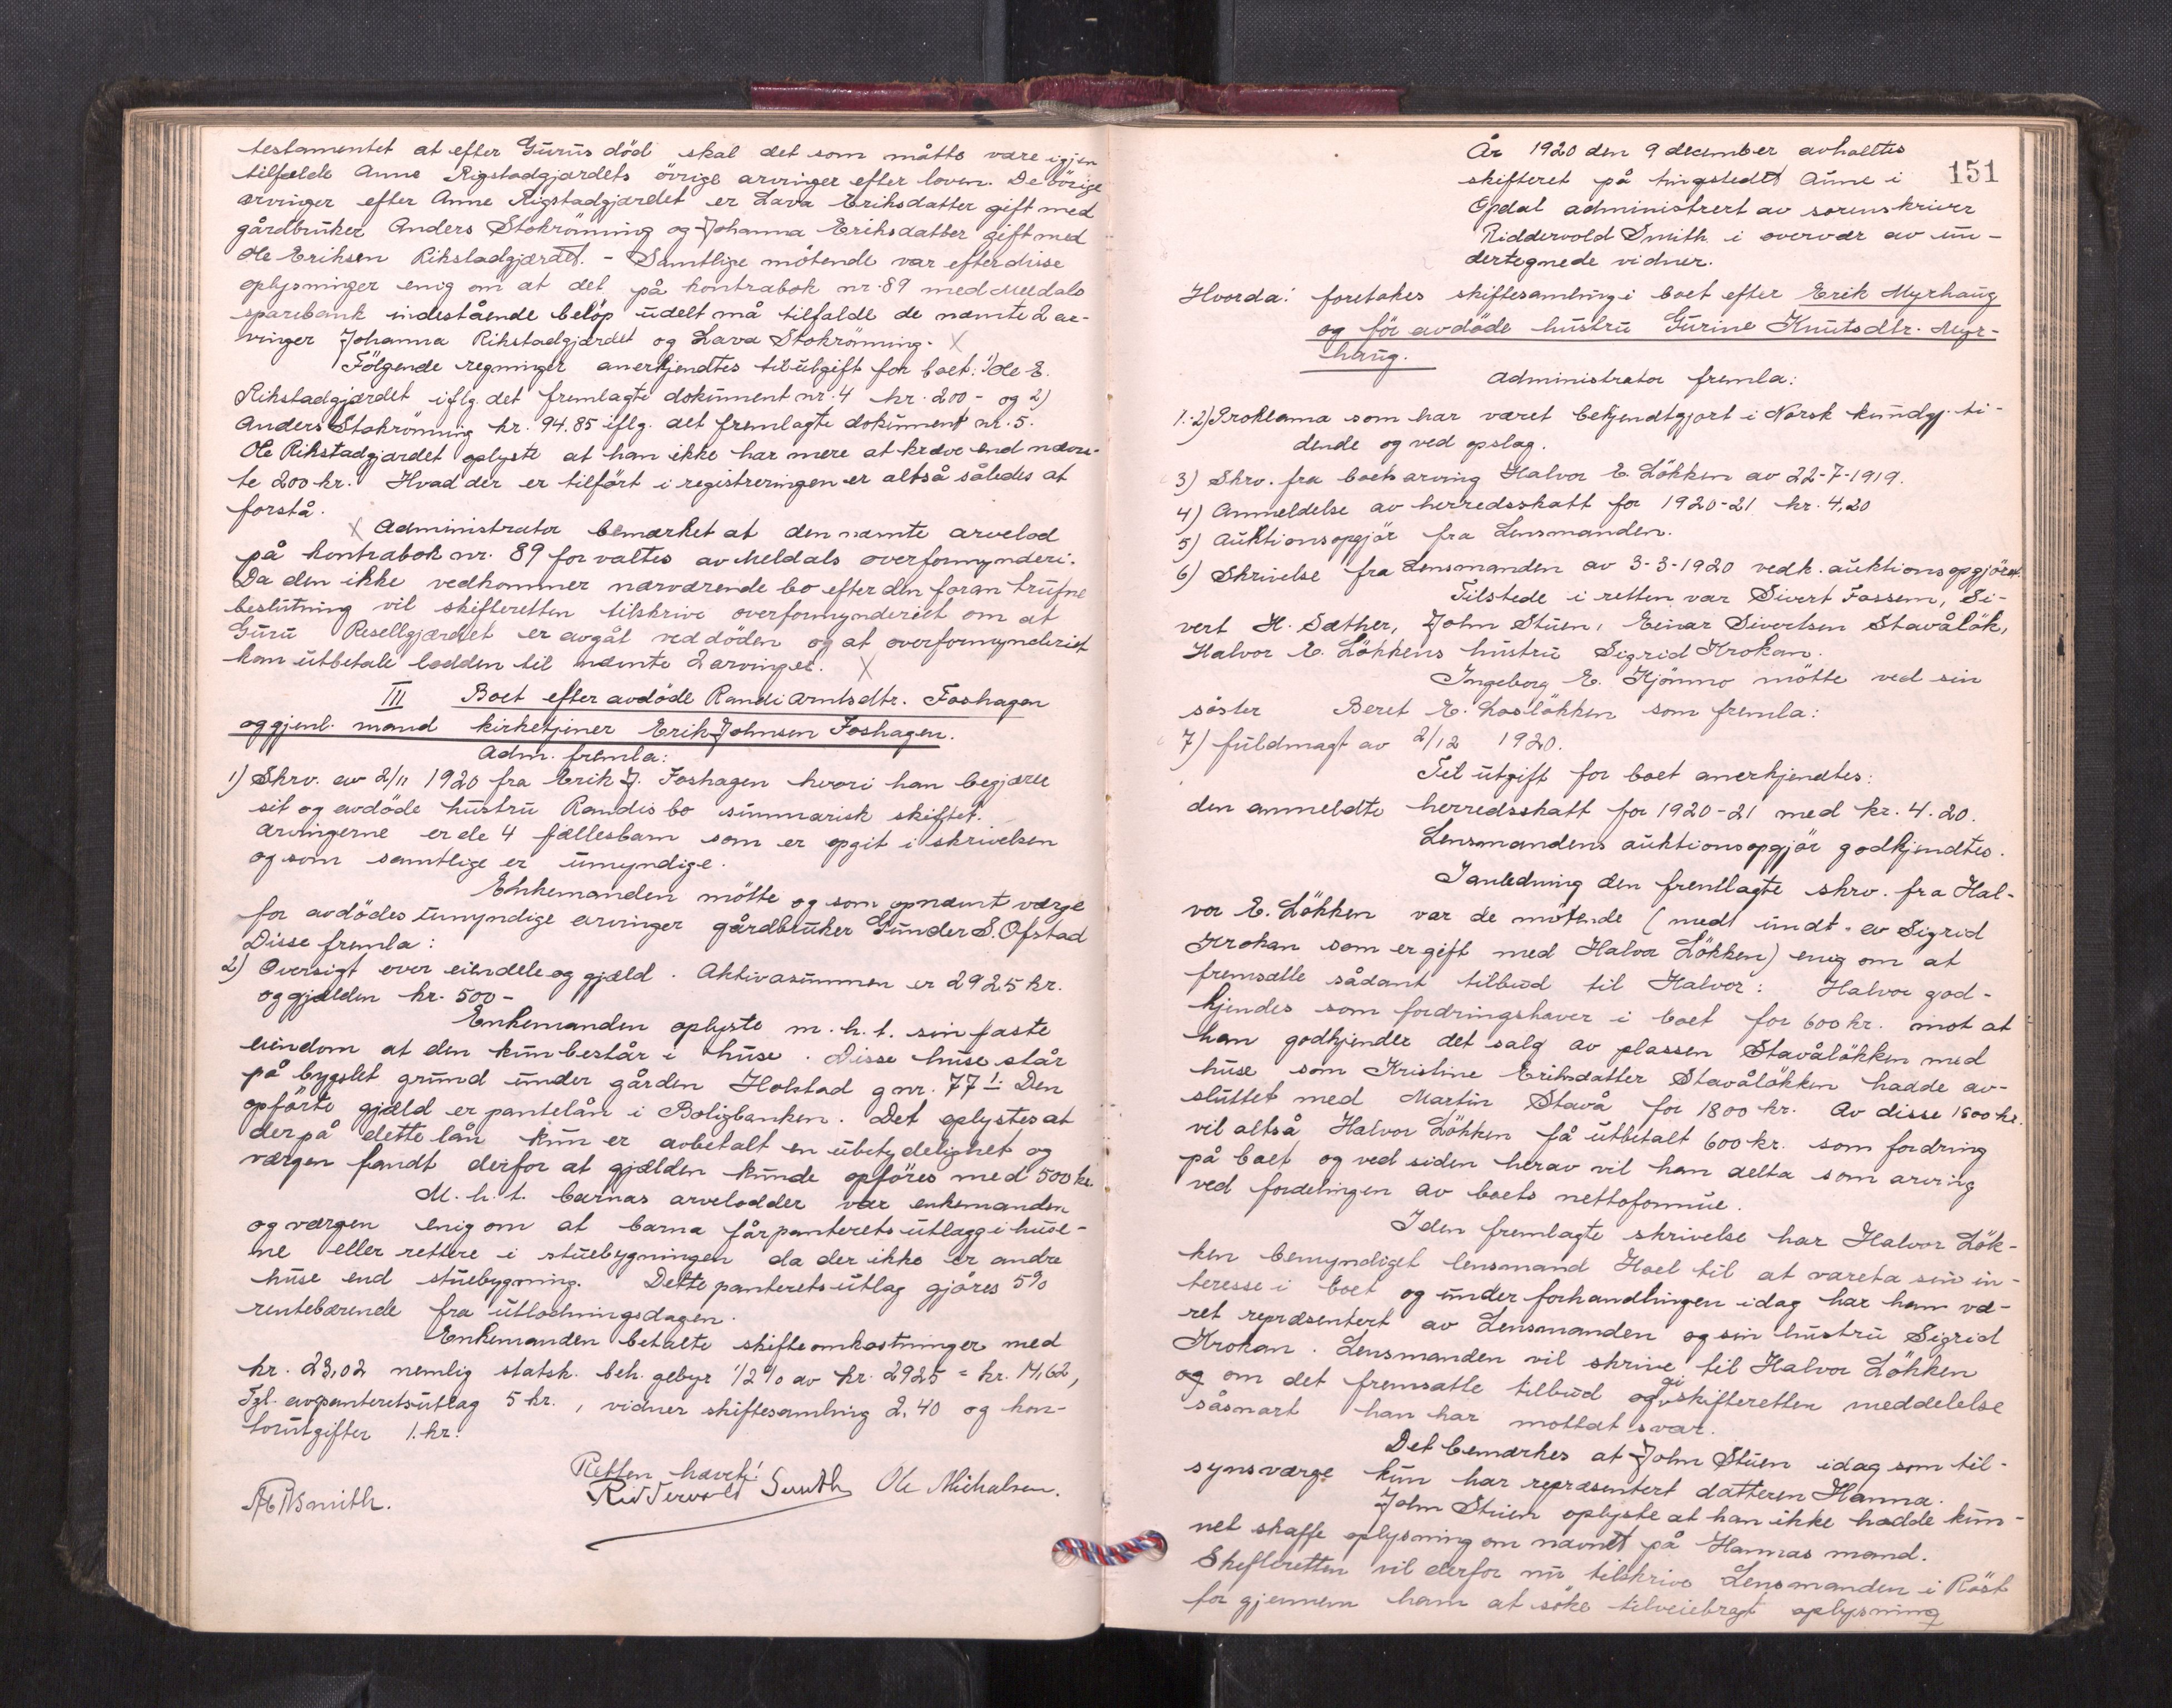 testamentet at efter Gurus död skal det som måtte være igjen
tilfælde Anne Rigstadgjærdets övrige arvinger efter loven. De övrige
arvinger efter Anne Rigstadgjærdet er Lava Eriksdatter gift med
gårdbruker Anders Stokrönning og Johanna Eriksdatter gift med
Ole Eriksen Rikstadgjærdet. - Samtlige mötende var efter disse
oplysninger enig om at det på kontrabok nr. 89 med Meldals
sparebank indestående belöp udelt må tilfalde de nævnte 2 ar-
vinger Johanna Rikstadgjærdet og Lava Stokrönning. X
Fölgende regninger anerkjendtes til utgift for boet: 1) Ole E.
Rikstadgjærdet iflg. det fremlagte dokument nr. 4 kr. 200 - og 2)
Anders Stokrönning kr. 94.85 iflg. det fremlagte dokument nr. 5.
Ole Rikstadgjærdet oplyste at han ikke har mere at kræve end nævn-
te 200 kr. Hvad der er tilfört i registreringen er altså således at
forstå.
X Administrator bemærket at den nævnte arvelod
på kontrabok nr. 89 forvaltes av Meldals overformynderi.
Da den ikke vedkommer nærværende bo efter den foran trufne
beslutning vil skifteretten tilskrive overformynderiet om at
Guru Resellgjærdet er avgåt ved döden og at overformynderiet
kan utbetale lodden til nævnte 2 arvinger. X
III Boet efter avdöde Randi Arntsdtr. Foshagen
og gjenl. mand kirketjener Erik Johnsen Foshagen.
Adm. fremla:
1) Skrv. av 2/11 1920 fra Erik J. Foshagen hvori han begjærer
sit og avdöde hustru Randis bo summarisk skiftet.
Arvingerne er de 4 fællesbarn som er opgit i skrivelsen
og som samtlige er umyndige.
Enkemanden mötte og som opnævnt værge
for avdödes umyndige arvinger gårdbruker Gunder S. Ofstad
Disse fremla:
2) Oversigt over eiendele og gjæld. Aktivasummen er 2925 kr.
og gjælden kr. 500 -
Enkemanden oplyste m. h. t. sin faste
eiendom at den kun består i huse. Disse huse står
på bygslet grund under gården Holstad gnr. 77 1. Den
opförte gjæld er pantelån i Boligbanken. Det oplystes at
der på dette lån kun er avbetalt en ubetydelighet og
værgen fandt derfor at gjælden kunde opföres med 500 kr.
M. h. t. barnas arvelodder var enkemanden
og værgen enig om at barna får panterets utlægg i huse-
ne eller rettere i stuebygningen da der ikke er andre
huse end stuebygning. Dette panterets utlag gjöres 5%
rentebærende fra utlodningsdagen.
Enkemanden betalte skifteomkostninger med
kr. 23,02 nemlig statsk. beh. gebyr 1/2% av kr. 2925 = kr. 14,62,
Tgl. av panteretsutlag 5 kr., vidner skiftesamling 2.40 og kon-
torutgifter 1. kr.
Retten hævet!
Riddervold Smith Ole Michalsen.
Smith.
151
År 1920 den 9 december avholdtes
skifteret på tingstedet Aune i
Opdal administrert av sorenskriver
Riddervold Smith i overvær av un-
dertegnede vidner.
Hvorda: foretokes skiftesamling i boet efter Erik Myrhaug
og för avdöde hustru Gurine Knutsdtr. Myr-
haug.
Administrator fremla:
1.-2) Proklama som har været bekjendtgjort i Norsk kundgj. ti-
dende og ved opslag.
3) Skrv. fra boets arving Halvor E. Lökken av 22-7-1919.
4) Anmeldelse av herredsskatt for 1920-21 kr. 4,20
5) Auktionsopgjör fra Lensmanden.
6) Skrivelse fra Lensmanden av 3-3-1920 vedk. auktionsopgjöret.
Tilstede i retten var Sivert Fossem, Si-
vert H. Sæther, John Stuen, Einar Sivertsen Stavålök,
Halvor E. Lökkens hustru Sigrid Krokan.
Ingeborg E. Hjönno mötte ved sin
söster Beret E. Loslökken som fremla:
7) fuldmagt av 2/12 1920.
Til utgift for boet anerkjendtes:
den anmeldte herredsskatt for 1920-21 med kr. 4.20.
Lensmandens auktionsopgjör godkjendtes.
I anledning den fremlagte skrv. fra Hal-
vor E. Lökken var de mötende (med undt. av Sigrid
Krokan som er gift med Halvor Lökken) enig om at
fremsætte sådant tilbud til Halvor: Halvor god-
kjendes som fordringshaver i boet for 600 kr. mot at
han godkjender det salg av plassen Stavålökken med
huse som Kristine Eriksdatter Stavålökken hadde av-
sluttet med Martin Stavå for 1800 kr. Av disse 1800 kr.
vil altså Halvor Lökken få utbetalt 600 kr. som fordring
på boet og ved siden herav vil han delta som arving
ved fordelingen av boets nettoformue.
I den fremlagte skrivelse har Halvor Lök-
ken bemyndiget lensmand Hoel til at vareta sin in-
teresse i boet og under forhandlingen idag har han væ-
ret repræsentert av Lensmanden og sin hustru Sigrid
Krokan. Lensmanden vil skrive til Halvor Lökken
og om det fremsatte tilbud og gi skifteretten meddelelse
såsnart han har mottat svar.
Det bemærkes at John Stuen idag som til-
synsværge kun har repræsentert datteren Hanna.
John Stuen oplyste at han ikke hadde kun-
net skaffe oplysning om navnet på Hannas mand.
Skifteretten vil derfor nu tilskrive Lensmanden i Röst
for gjennem ham at söke tilveiebragt oplysning